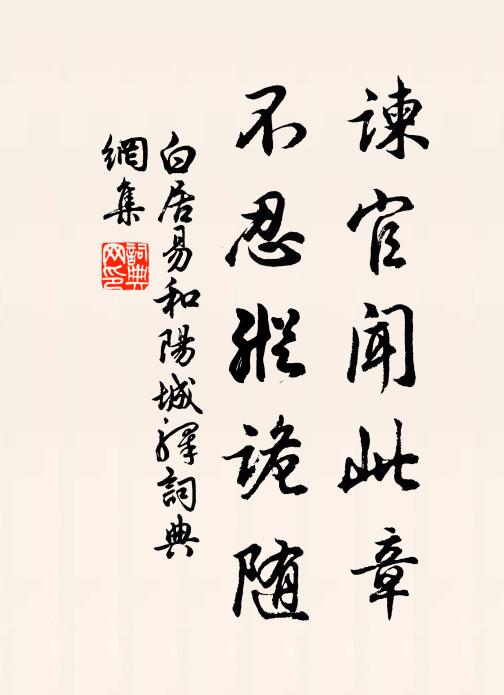 諫官聞此章
不忍縱詭随
白居易和陽城驛詞典
網集
詞典
网印